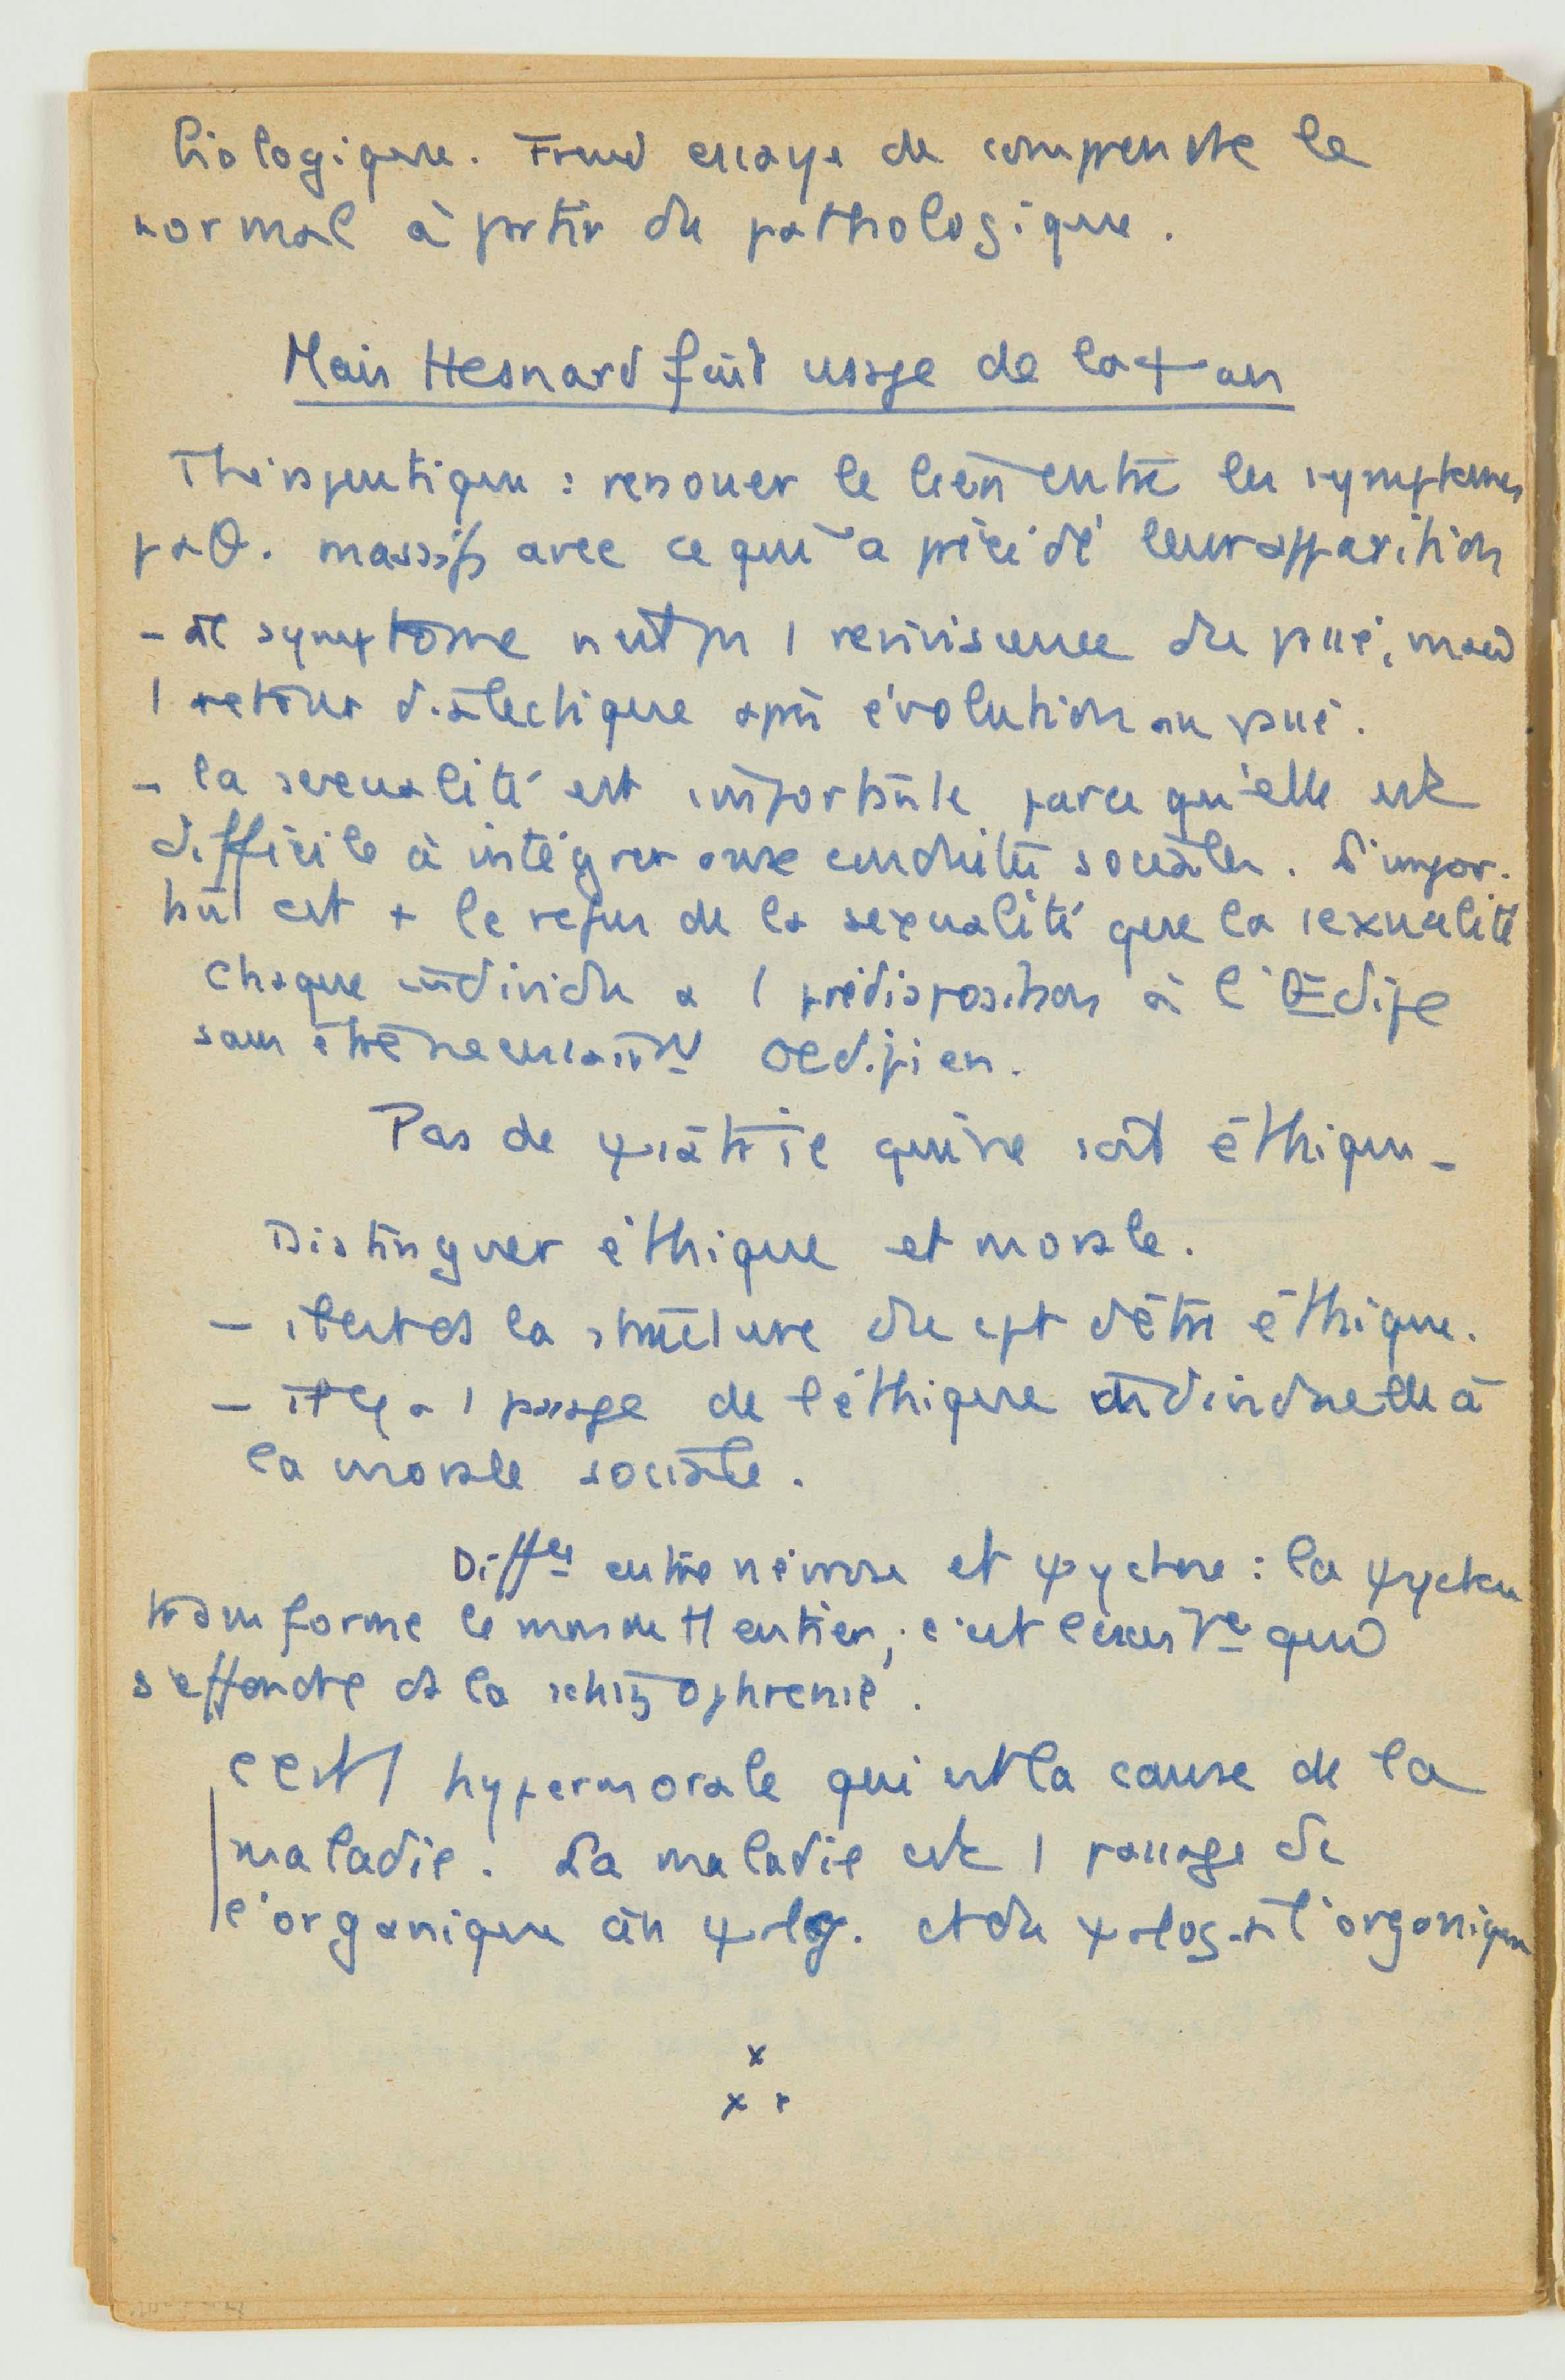 biologique. Freud essaye de comprendre le
normal à partir du pathologique.
Mais Hesnard fait usage de la ψan
Thérapeutique : renouer le lien entre les symptomes
paθ. massifs avec ce qui a précédé leur apparition
- le symptome n'est pas 1 reviviscence du passé, mais
1 retour dialectique après évolution au passé.
- la sexualité est importante parce qu'elle est
difficile à intégrer aux conduites sociales. L'impor-
tant est + le refus de la sexualité que la sexualité
Chaque individu a 1 prédisposition à l'Œdipe
sans être nécessairt oedipien.
Pas de ψiatrie qui ne soit éthique -
Distinguer éthique et morale.
- il est ds la structure du cpt d'être éthique.
- il y a 1 passage de l'éthique individuelle à
la morale sociale.
Diffce entre névrose et ψychose : la ψychose
transforme le monde tt entier ; c'est l'exister qui
s'effondre ds la schizophrenie.
C'est 1 hypermorale qui est la cause de la
maladie. La maladie est 1 passage de
l'organique au ψlog. et du ψlog. à l'organique
x
x x